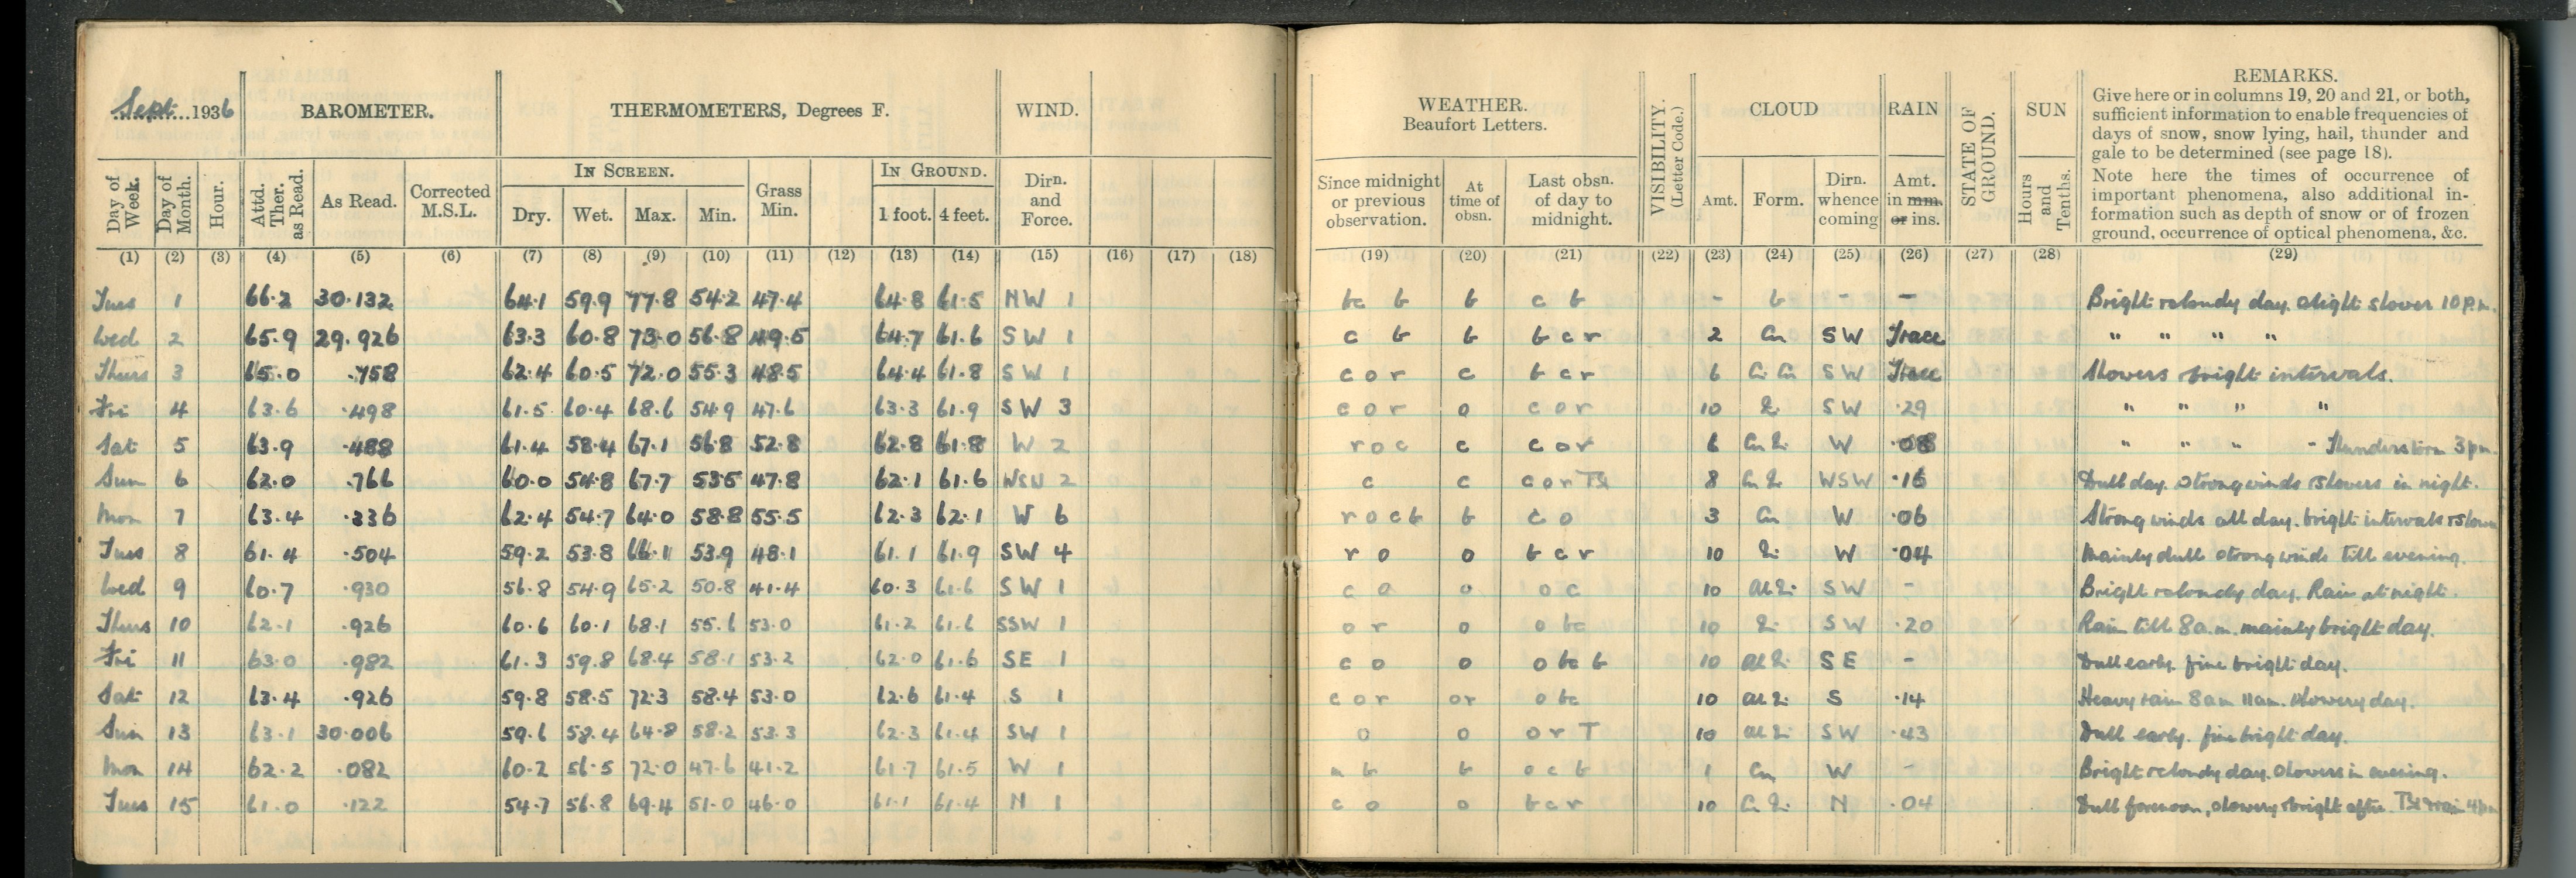 Sept. 1936 BAROMETER. THERMOMETERS, Degrees F. WIND. WEATHER. Beaufort Letters. VISIBILITY. (Letter Code.) CLOUD RAIN STATE OF GROUND. SUN REMARKS.
Give here or in columns 19, 20 and 21, or both,
sufficient information to enable frequencies of
days of snow, snow lying, hail, thunder and
gale to be determined (see page 18).
Note here the times of occurrence of
important phenomena, also additional in-
formation such as depth of snow or of frozen
ground, occurrence of optical phenomena, &c.
IN SCREEN. IN GROUND.
Day of Week. Day of Month. Hour. Attd. Ther. as Read. As Read. Corrected M.S.L. Dry. Wet. Max. Min. Grass Min. 1 foot. 4 feet. Dirn. and Force. Since midnight or previous observation. At time of obsn. Last obsn. of day to midnight. Amt. Form. Dirn. whence coming Amt. in mm. or ins. Hours and Tenths.
(1) (2) (3) (4) (5) (6) (7) (8) (9) (10) (11) (12) (13) (14) (15) (16) (17) (18) (19) (20) (21) (22) (23) (24) (25) (26) (27) (28) (29)
Tues 1 66.2 30.132 64.1 59.9 77.8 54.2 47.4 64.8 61.5 NW 1 bc b b c b - b - - Bright & cloudy day. slight shower 10 p.m.
Wed 2 65.9 29.926 63.3 60.8 73.0 56.8 49.5 64.7 61.6 SW 1 c b b b c r 2 Cu SW Trace " " " "
Thurs 3 65.0 .758 62.4 60.5 72.0 55.3 48.5 64.4 61.8 SW 1 c o r c b c r 6 SW Trace Showers & bright intervals.
Fri 4 63.6 .498 61.5 60.4 68.6 54.9 47.6 63.3 61.9 SW 3 c o r o c o r 10 SW .29 " " " "
Sat 5 63.9 .488 61.4 58.4 67.1 56.8 52.8 62.8 61.8 W 2 r o c c c o r 6 W .08 " " " - Thunderstorm 3 pm.
Sun 6 62.0 .766 60.0 54.8 67.7 53.5 47.8 62.1 61.6 WSW 2 c c c o r 8 WSW .16 Dull day. Strong winds & showers in night.
Mon 7 63.4 .336 62.4 54.7 64.0 58.8 55.5 62.3 62.1 W 6 r o c b b c o 3 Cu W .06 Strong winds all day. bright intervals &
Tues 8 61.4 .504 59.2 53.8 66.1 53.9 48.1 61.1 61.9 SW 4 r o o b c r 10 W .04 Mainly dull strong winds till evening.
Wed 9 60.7 .930 56.8 54.9 65.2 50.8 41.4 60.3 61.6 SW 1 c o o o c 10 SW - Bright & cloudy day. Rain at night.
Thurs 10 62.1 .926 60.6 60.1 68.1 55.6 53.0 61.2 61.6 SSW 1 o r o o bc 10 SW .20 Rain till 8 a.m. mainly bright day.
Fri 11 63.0 .982 61.3 59.8 68.4 58.1 53.2 62.0 61.6 SE 1 c o o o bc b 10 SE - Dull early. fine bright day.
Sat 12 63.4 .926 59.8 58.5 72.3 58.4 53.0 62.6 61.4 S 1 c o r or o bc 10 S .14 Heavy rain 8 am 11 am. Showery day.
Sun 13 63.1 30.006 59.6 58.4 64.8 58.2 53.3 62.3 61.4 SW 1 o o o r T 10 SW .43 Dull early. fine bright day.
Mon 14 62.2 .082 60.2 56.5 72.0 47.6 41.2 61.7 61.5 W 1 b b o c b 1 Cu W - Bright & cloudy day. Showers in evening.
Tues 15 61.0 .122 54.7 56.8 69.4 51.0 46.0 61.1 61.4 N 1 c o o b c r 10 N .04 Dull forenoon, showery & bright after. rain 4 pm